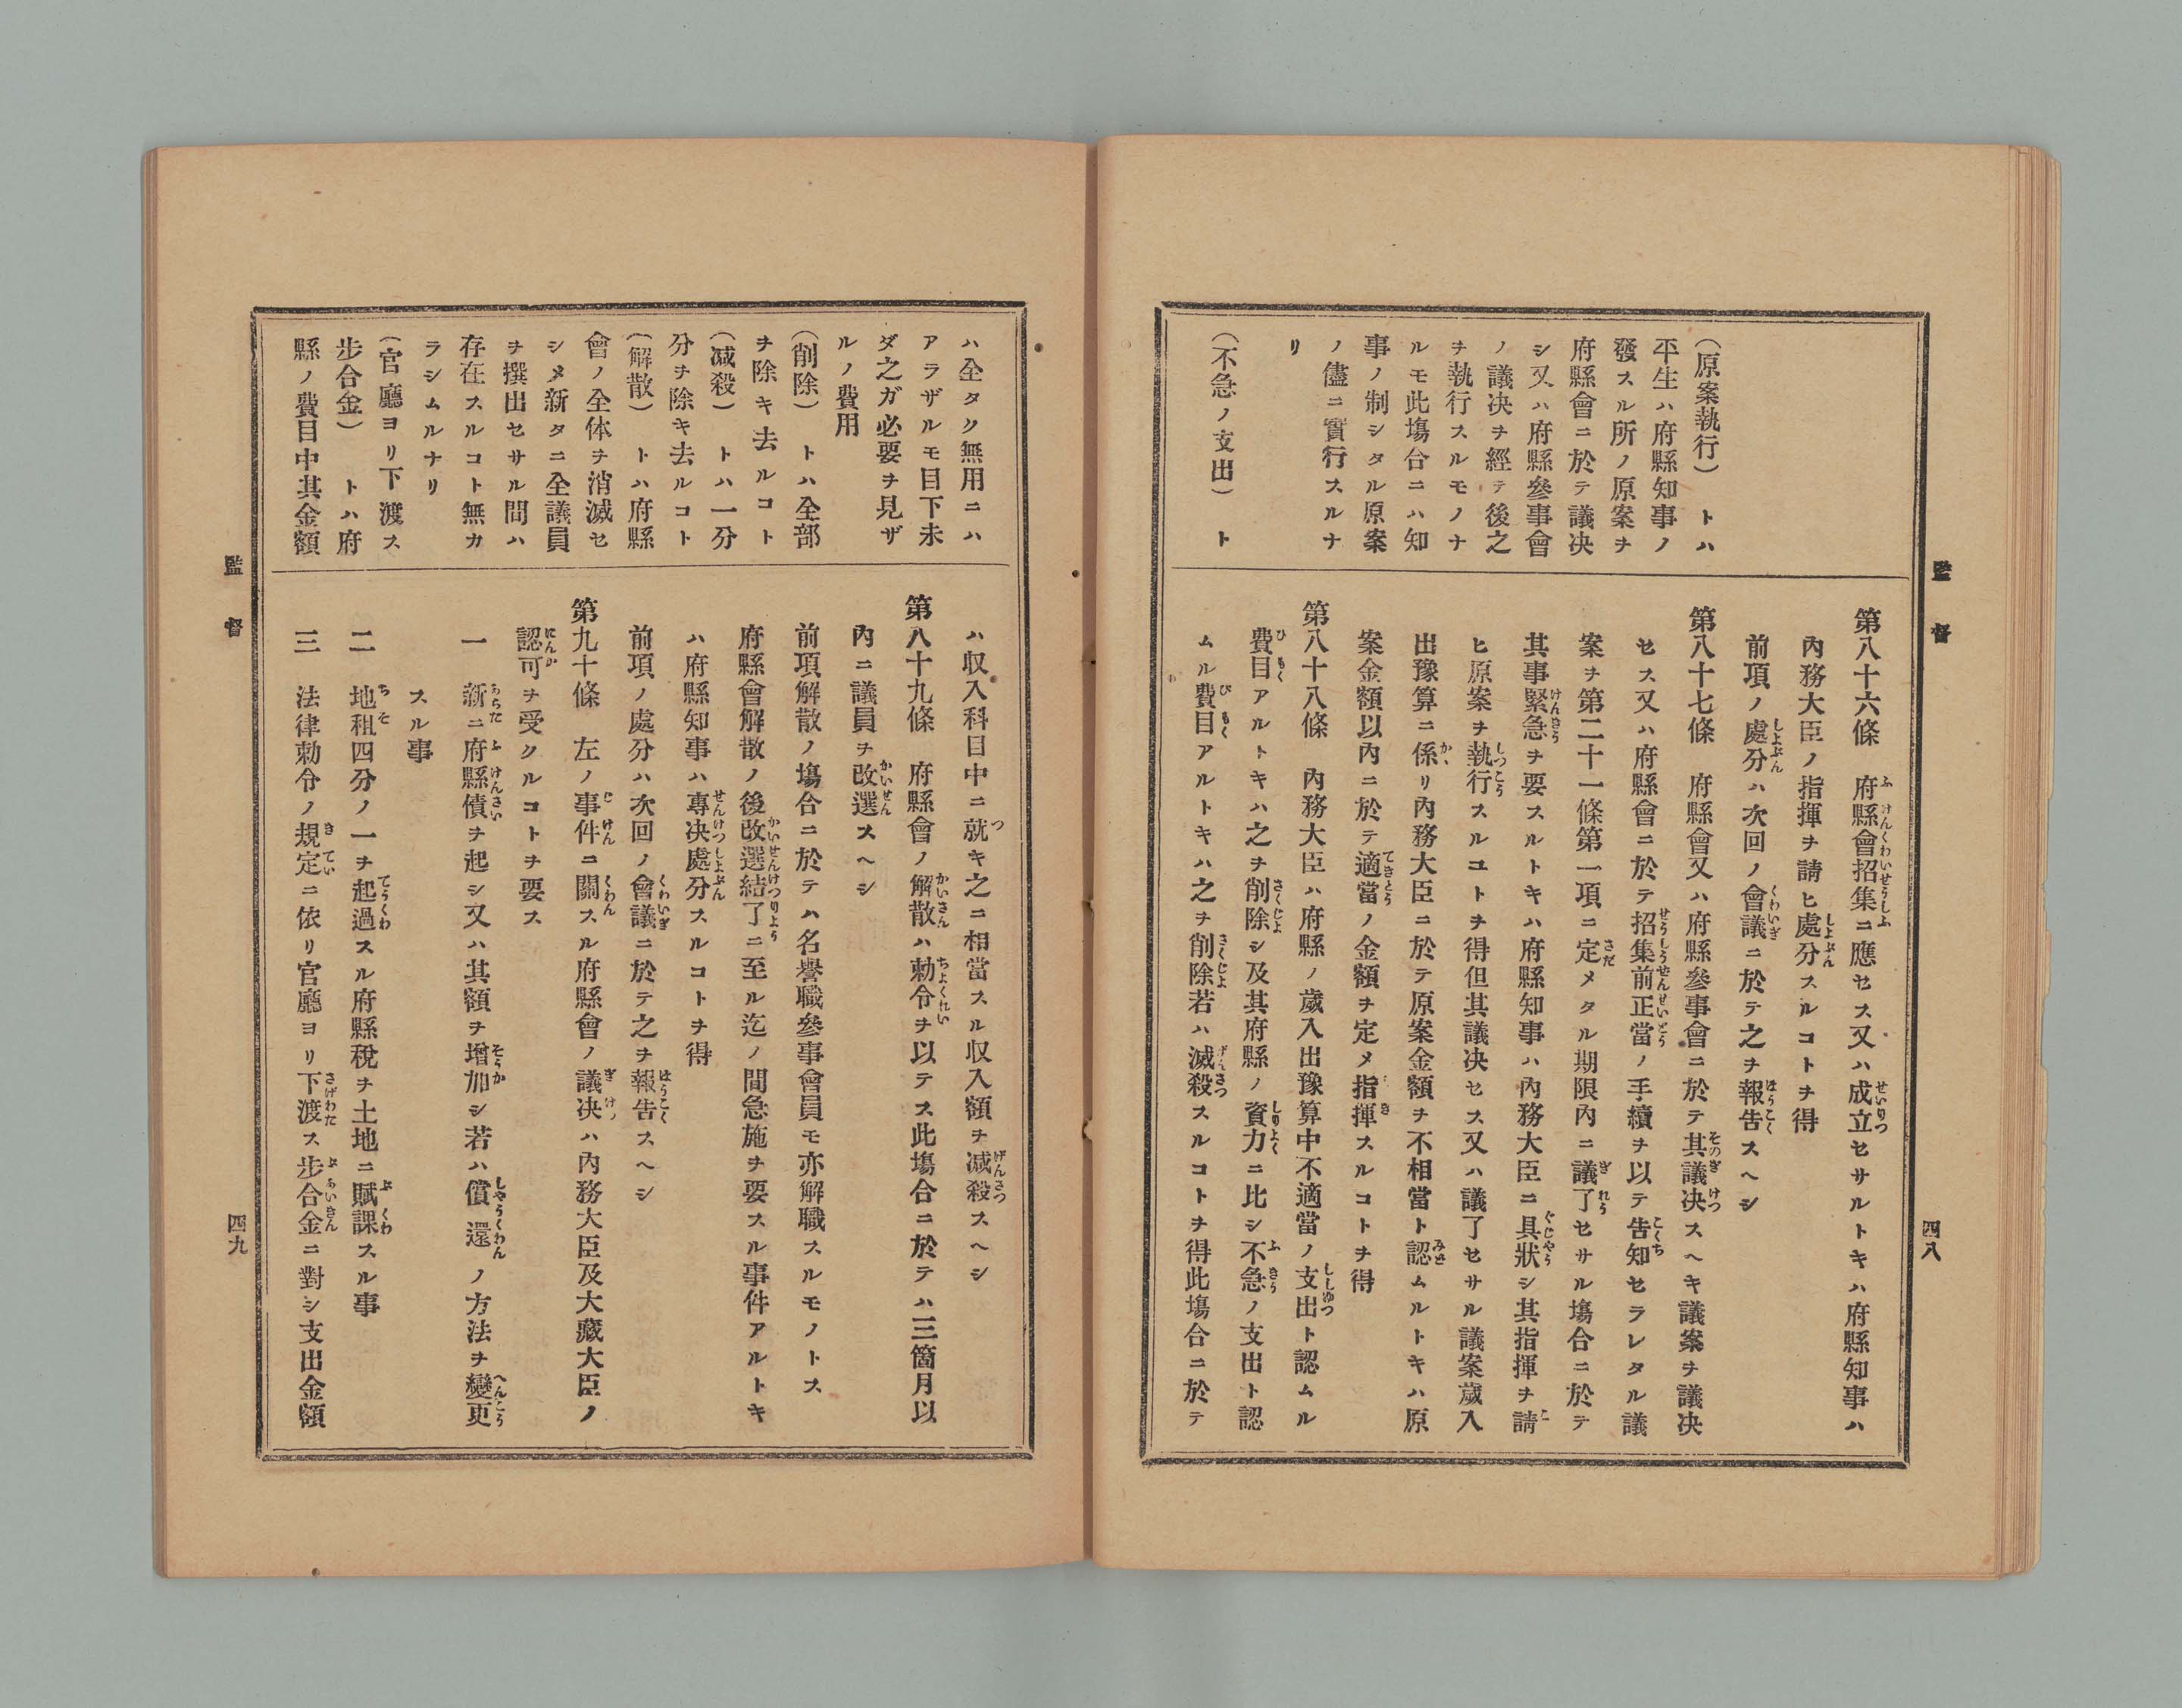 監督
四八
(原案執行)トハ
平生ハ府縣知事ノ
發スル所ノ原案ヲ
府縣會ニ於テ議决
シ又ハ府縣參事會
ノ議决ヲ經テ後之
ヲ執行スルモノナ
ルモ此塲合ニハ知
事ノ制シタル原案
ノ儘ニ實行スルナ
リ
(不急ノ支出)ト
第八十六條 府縣會招集ニ應セス又ハ成立セサルトキハ府縣知事ハ
內務大臣ノ指揮ヲ請ヒ處分スルコトヲ得
前項ノ處分ハ次回ノ會議ニ於テ之ヲ報告スヘシ
第八十七條 府縣會又ハ府縣參事會ニ於テ其議决スヘキ議案ヲ議决
セス又ハ府縣會ニ於テ招集前正當ノ手續ヲ以テ告知セラレタル議
案ヲ第二十一條第一項ニ定メタル期限內ニ議了セサル塲合ニ於テ
其事緊急ヲ要スルトキハ府縣知事ハ內務大臣ニ具狀シ其指揮ヲ請
ヒ原案ヲ執行スルコトヲ得但其議决セス又ハ議了セサル議案歲入
出豫算ニ係リ內務大臣ニ於テ原案金額ヲ不相當ト認ムルトキハ原
案金額以內ニ於テ適當ノ金額ヲ定メ指揮スルコトヲ得
第八十八條 內務大臣ハ府縣ノ歲入出豫算中不適當ノ支出ト認ムル
費目アルトキハ之ヲ削除シ及其府縣ノ資力ニ比シ不急ノ支出ト認
ムル費目アルトキハ之ヲ削除若ハ减殺スルコトヲ得此塲合ニ於テ
ハ全タク無用ニハ
アラザルモ目下未
ダ之ガ必要ヲ見ザ
ルノ費用
(削除)トハ全部
ヲ除キ去ルコト
(减殺)トハ一分
分ヲ除キ去ルコト
(解散)トハ府縣
會ノ全体ヲ消滅セ
シメ新タニ全議員
ヲ撰出セサル間ハ
存在スルコト無カ
ラシムルナリ
(官廳ヨリ下渡ス
步合金)トハ府
縣ノ費目中其金額
ハ収入科目中ニ就キ之ニ相當スル収入額ヲ减殺スヘシ
第八十九條 府縣會ノ解散ハ勅令ヲ以テス此塲合ニ於テハ三箇月以
內ニ議員ヲ改選スヘシ
前項解散ノ塲合ニ於テハ名譽職參事會員モ亦解職スルモノトス
府縣會解散ノ後改選結了ニ至ル迄ノ間急施ヲ要スル事件アルトキ
ハ府縣知事ハ專决處分スルコトヲ得
前項ノ處分ハ次回ノ會議ニ於テ之ヲ報告スヘシ
第九十條 左ノ事件ニ關スル府縣會ノ議决ハ內務大臣及大藏大臣ノ
認可ヲ受クルコトヲ要ス
一 新ニ府縣債ヲ起シ又ハ其額ヲ增加シ若ハ償還ノ方法ヲ變更
スル事
二 地租四分ノ一ヲ起過スル府縣稅ヲ土地ニ賦課スル事
三 法律勅令ノ規定ニ依リ官廳ヨリ下渡ス步合金ニ對シ支出金額
監督
四九